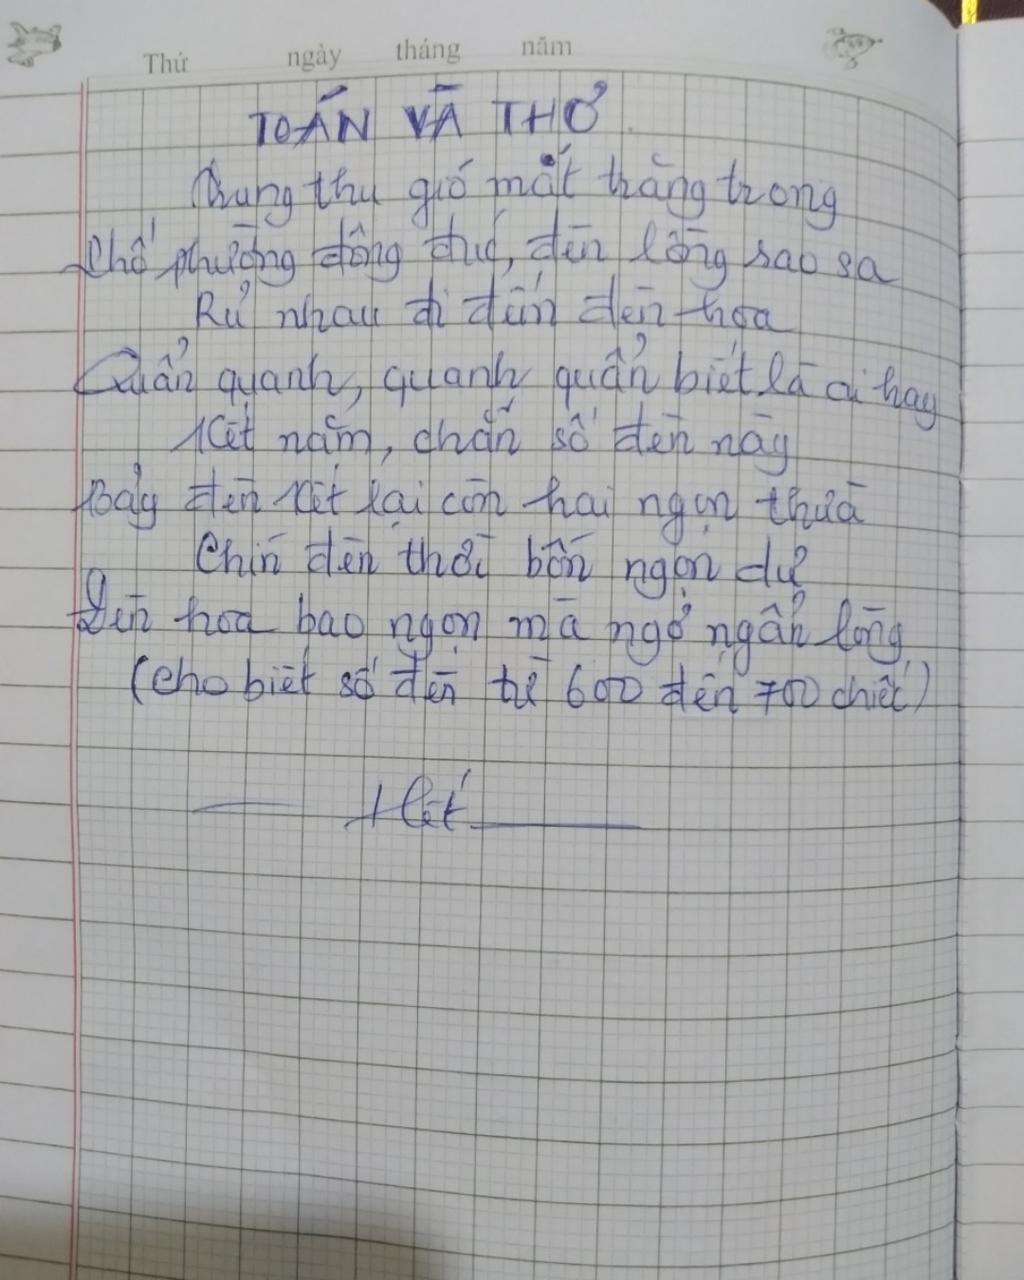 Thứ ngày tháng năm
TOÁN VÀ THƠ
Trung thu gió mát trăng trong
Phố phường đông đúc, đèn lồng sao sa
Rủ nhau đi đếm đèn hoa
Quẩn quanh, quanh quẩn biết là ai hay
Kết năm, chẵn số đèn này
Bảy đèn kết lại còn hai ngọn thừa
Chín đèn thời bốn ngọn dư
Đèn hoa bao ngọn mà ngơ ngẩn lòng
(Cho biết số đèn từ 600 đến 700 chiếc)
Hết